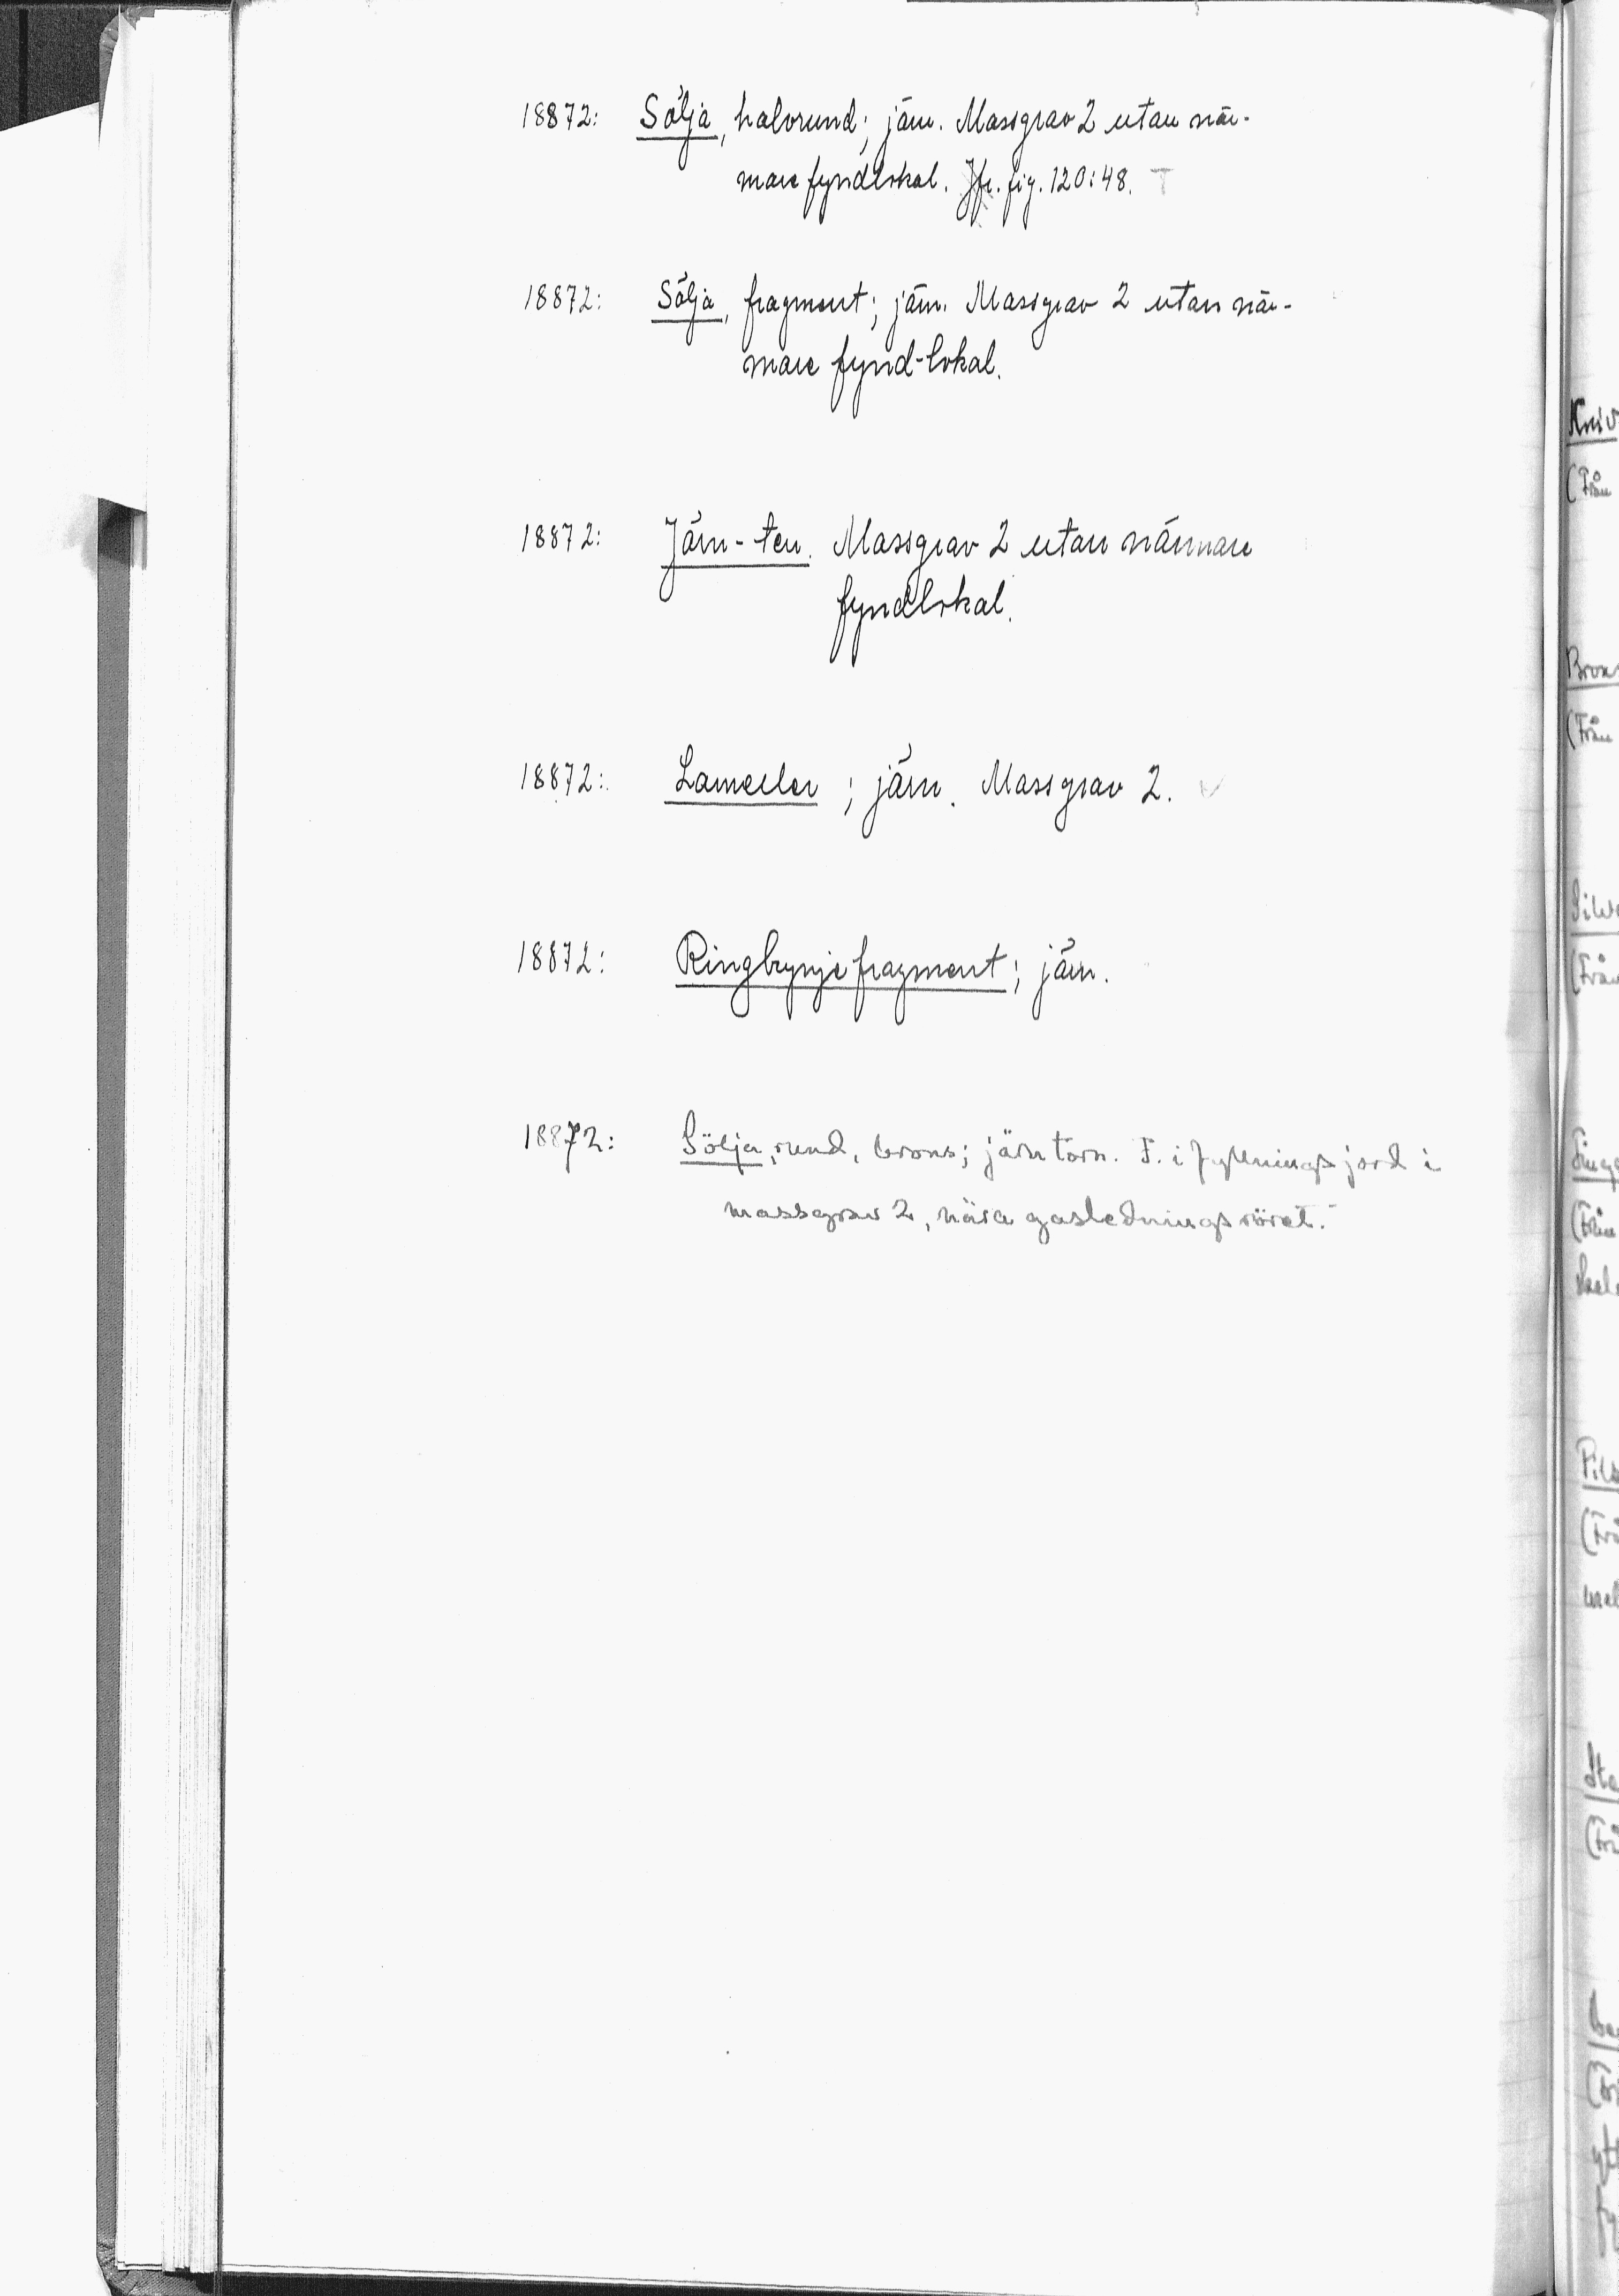 18872: Sölja, halvrund; järn. Massgrav 2 utan när-
mare fyndlokal. Jfr. fig. 120:48. T
18872: Sölja, fragment; järn. Massgrav 2 utan när-
mare fynd-lokal.
18872: Järn-ten. Massgrav 2 utan närmare
fyndlokal.
18872: Lameller; järn. Massgrav 2.
18872: Ringbrynjefragment; järn.
18872: Sölja, rund, brons; järntorn. F. i fyllningsjord i
massgrav 2, nära gasledningsröret.
Kniv
(Från
Brons
(Från
(Från
(Från